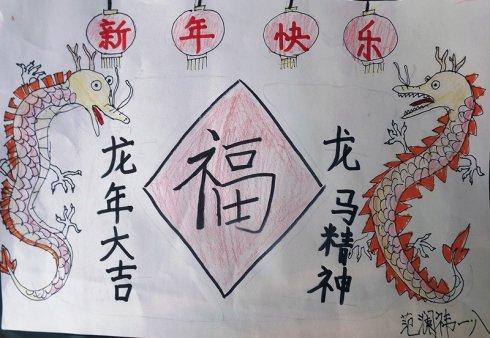 新年快乐
龙年大吉
福
龙马精神
范澜 一八